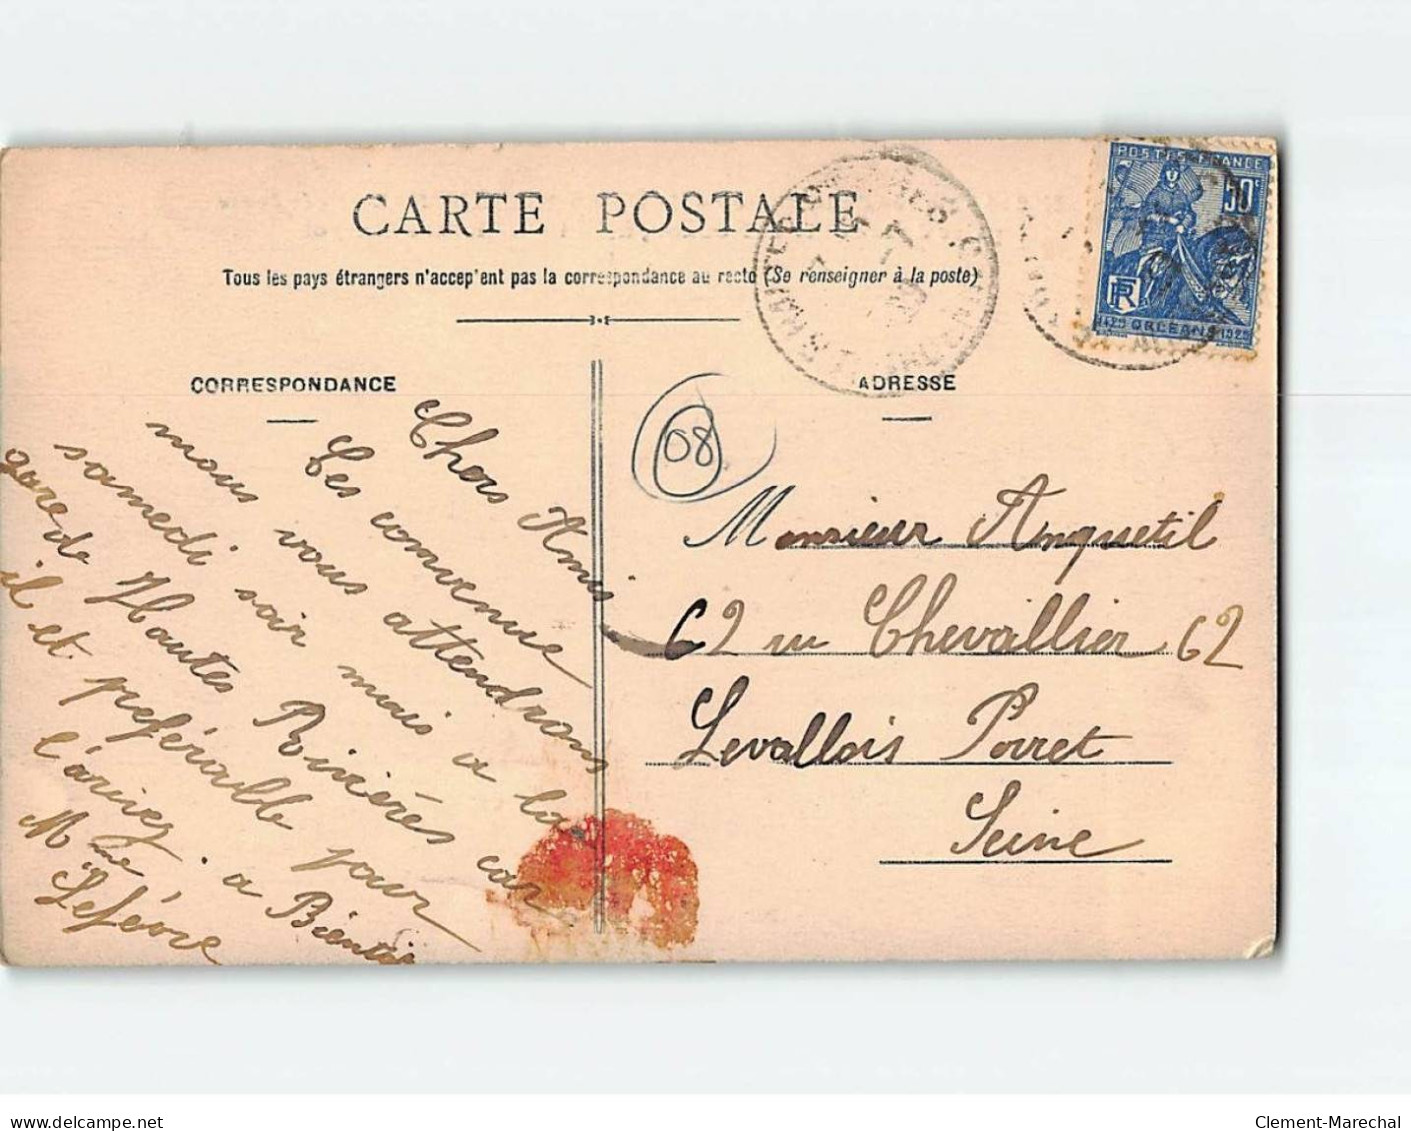 CARTE POSTALE
Tous les pays étrangers n'accep'ent pas la correspondance au recto (Se renseigner à la poste)
CORRESPONDANCE
ADRESSE
POSTES FRANCE
50c
RF
1429 ORLEANS 1929
08
Chers Amis
Ces convenue
nous vous attendrons
samedi soir mais a la
gare de Hautes Rivières car
il et preférable pour
l'arivez a Bientôt
Mme Lefévre
Monsieur Anquetil
62 ru Chevallier 62
Levallois Perret
Seine
www.delcampe.net
Clement-Marechal